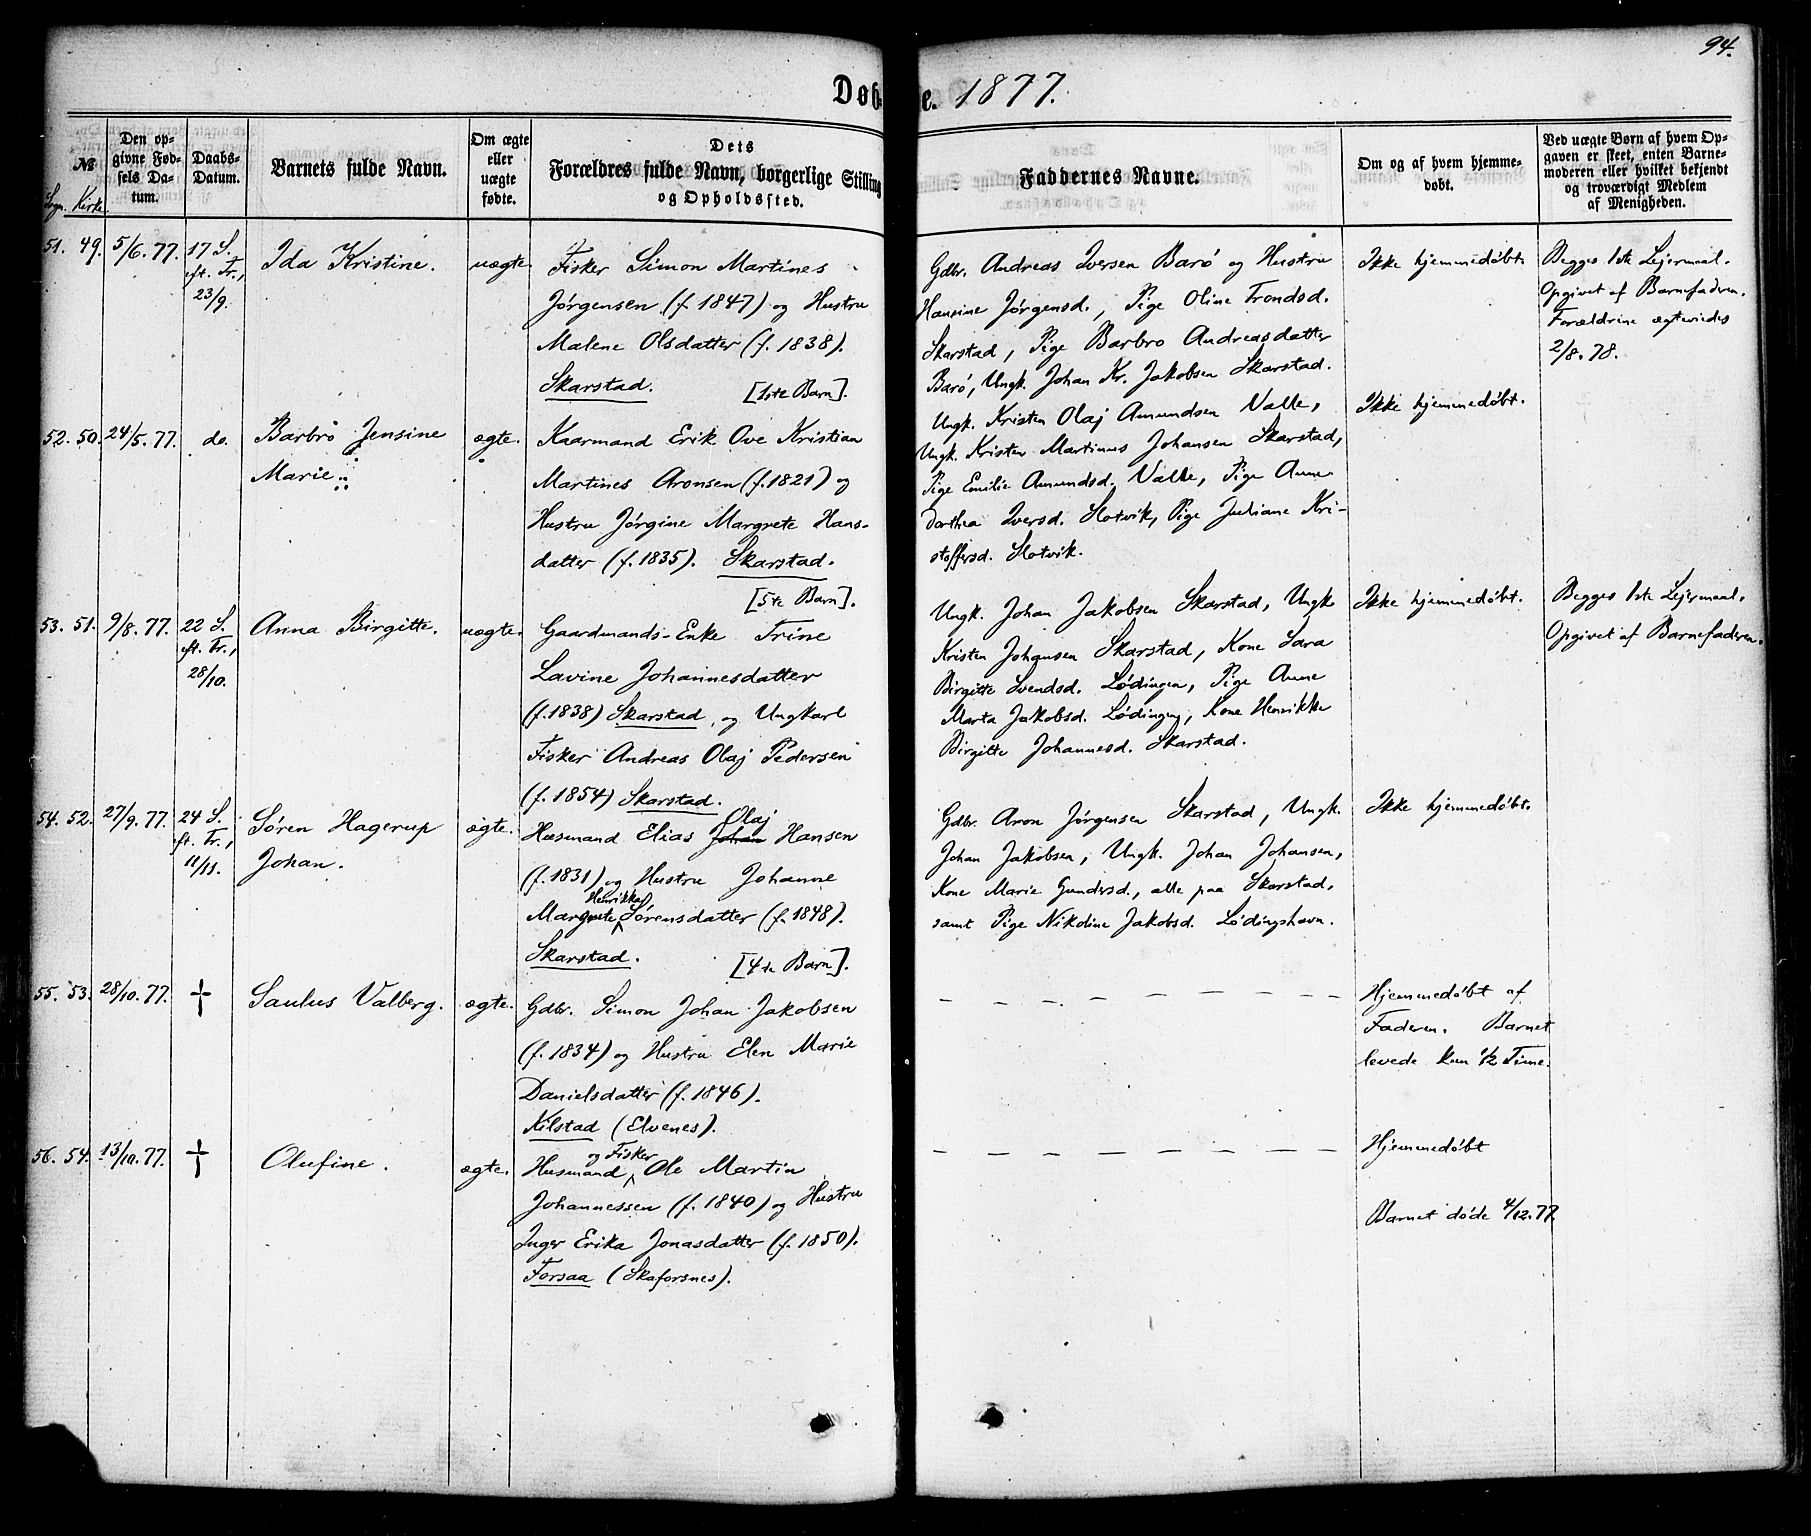 94.
Døbte. 1877.
№
Sogn. Kirke.
Den op-
givne Fød-
sels Da-
tum.
Daabs-
Datum.
Barnets fulde Navn.
Om ægte
eller
uægte
fødte.
Dets
Forældres fulde Navn, borgerlige Stilling
og Opholdssted.
Faddernes Navne.
Om og af hvem hjemme-
døbt.
Ved uægte Børn af hvem Op-
gaven er skeet, enten Barne-
moderen eller hvilket bekjendt
og troværdigt Medlem
af Menigheden.
51. 49. 5/6. 77.
17 S.
eft. Tr.,
23/9.
Ida Kristine.
uægte
Fisker Simon Martines
Jörgensen (f. 1847) og Hustru
Malene Olsdatter (f. 1838).
Skarstad. [1ste Barn].
Gdbr. Andreas Iversen Barö og Hustru
Hansine Jörgensd., Pige Oline Trondsd.
Skarstad, Pige Barbro Andreasdatter
Barö, Ungk. Johan Kr. Jakobsen Skarstad.
Ikke hjemmedöbt.
Begges 1ste Lejermaal.
Opgivet af Barnefaderen.
Forældrine ægteviedes
2/8. 78.
52. 50. 24/5. 77.
do.
Barbro Jensine
Marie
ægte.
Kaarmand Erik Ove Kristian
Martines Aronsen (f. 1821) og
Hustru Jörgine Margrete Hans-
datter (f. 1835). Skarstad.
[5te Barn].
Ungk. Kristen Olaj Amundsen Valle,
Ungk. Kristen Martinus Johansen Skarstad,
Pige Emilie Amundsd. Valle, Pige Anne
Dorthea Iversd. Slotvik, Pige Juliane Kri-
stoffersd. Slotvik.
Ikke hjemmedöbt.
53. 51. 9/8. 77.
22 S.
eft. Tr.,
28/10.
Anna Birgitte.
uægte.
Gaardmands-Enke Trine
Lavine Johannesdatter
(f. 1838) Skarstad, og Ungkarl
Fisker Andreas Olaj Pedersen
(f. 1854) Skarstad.
Ungk. Johan Jakobsen Skarstad, Ungk.
Kristen Johansen Skarstad, Kone Sara
Birgitte Svendsd. Lödingen, Pige Anne
Marta Jakobsd. Lödingen, Kone Henrikke
Birgitte Johannesd. Skarstad.
Ikke hjemmedöbt.
Begges 1ste Lejermaal.
Opgivet af Barnefaderen.
54. 52. 27/9. 77.
24 S.
eft. Tr.,
11/11.
Sören Hagerup
Johan.
ægte.
Olaj
Husmand Elias Johan Hansen
(f. 1831) og Hustru Johanne
Henrikka
Margrete Sörensdatter (f. 1848).
Skarstad. [4de Barn].
Gdbr. Aron Jörgensen Skarstad, Ungk.
Johan Jakobsen, Ungk. Johan Johansen,
Kone Marie Gundersd., alle paa Skarstad,
samt Pige Nikoline Jakobsd. Lödingshavn.
Ikke hjemmedöbt.
55. 53. 28/10. 77.
†
Saulus Valberg.
ægte.
Gdbr. Simon Johan Jakobsen
(f. 1834) og Hustru Elen Marie
Danielsdatter (f. 1846).
Kilstad (Elvenes).
— — — — — — — — — —
Hjemmedöbt af
Faderen. Barnet
levede kun 1/2 Time.
56. 54. 13/10. 77.
†
Olufine.
ægte.
og Fisker
Husmand Ole Martin
Johannessen (f. 1840) og Hustru
Inger Erika Jonasdatter (f. 1850).
Forsaa (Skaforsnes).
— — — — — — — — — —
Hjemmedöbt
Barnet döde 4/12. 77.